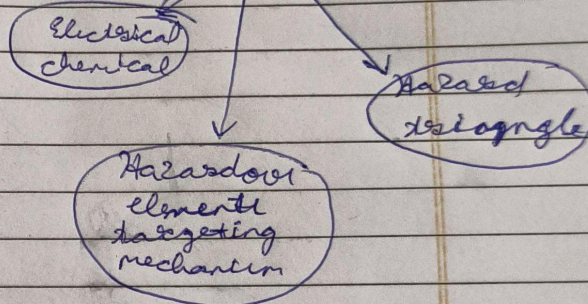 Electrical
chemical
Hazard
triangle
Hazardous
elements
targeting
mechanism